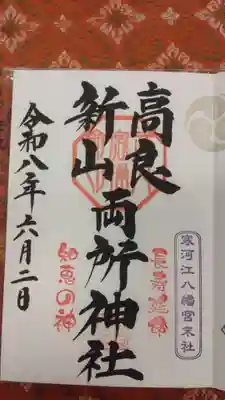 寒河江八幡宮末社
高良
新山両所神社
長寿延命
知恵の神
令和八年六月二日